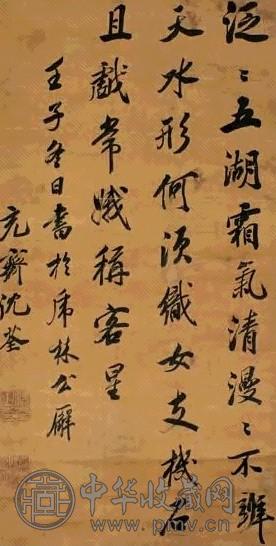 泛〻五湖霜氣清漫〻不辨
天水形何須織女支機石
且戲常娥稱客星
壬子冬日書於虎林公廨
充齋沈荃
中华收藏网